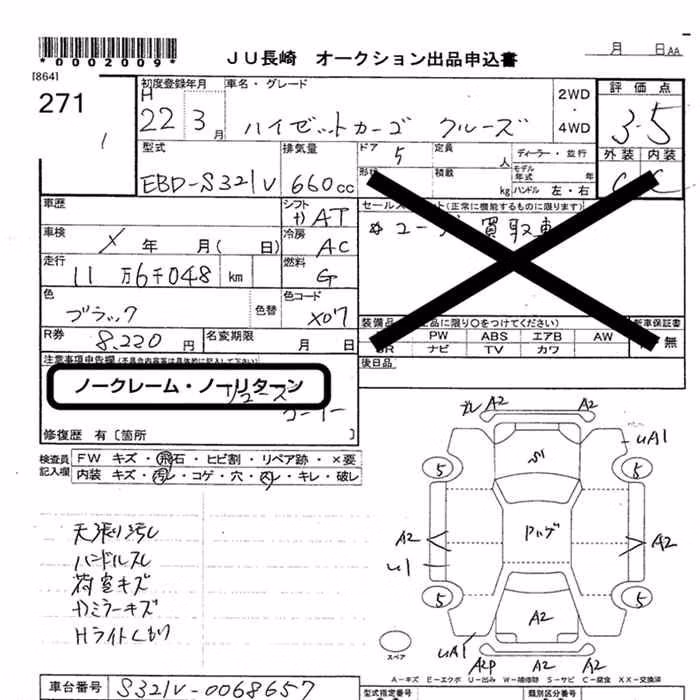 *0002009*
JU長崎 オークション出品申込書
月 日 AA
[864]
271
初度登録年月 車名・グレード
H 22 3月 ハイゼットカーゴ クルーズ
2WD・4WD
評価点
3.5
外装 内装
C C
型式 排気量
EBD-S321V 660cc
ドア 5 定員 人
ディーラー・並行
積載 kg
モデル年式 年
ハンドル 左・右
車歴
シフト AT
セールスポイント(正常に機能するものに限ります)
買取車
車検 X 年 月( 日)
冷房 AC
走行 11万6千048 km
燃料 G
色 ブラック 色替
色コード X07
R券 8,220円 名変期限 月 日
装備品
新車保証書
PW ABS エアB AW
ナビ TV カワ
無
後日品
注意事項申告欄(不具合内容等は具体的に記入して下さい)
ノークレーム・ノーリターン
修復歴 有〔箇所 〕
検査員記入欄
FW キズ・飛石・ヒビ割・リペア跡・×要
内装 キズ・汚レ・コゲ・穴・スレ・キレ・破レ
天張り汚レ
ハンドルスレ
荷室キズ
Hライトくもり
A2 A2
UA1
5 5
A2 A2
U1
5 5
A2
UA1
A2P A2 A2
スペア
A-キズ E-エクボ U-凹み W-補修跡 S-サビ C-腐食 XX-交換済
車台番号 S321V-0068657
型式指定番号 類別区分番号